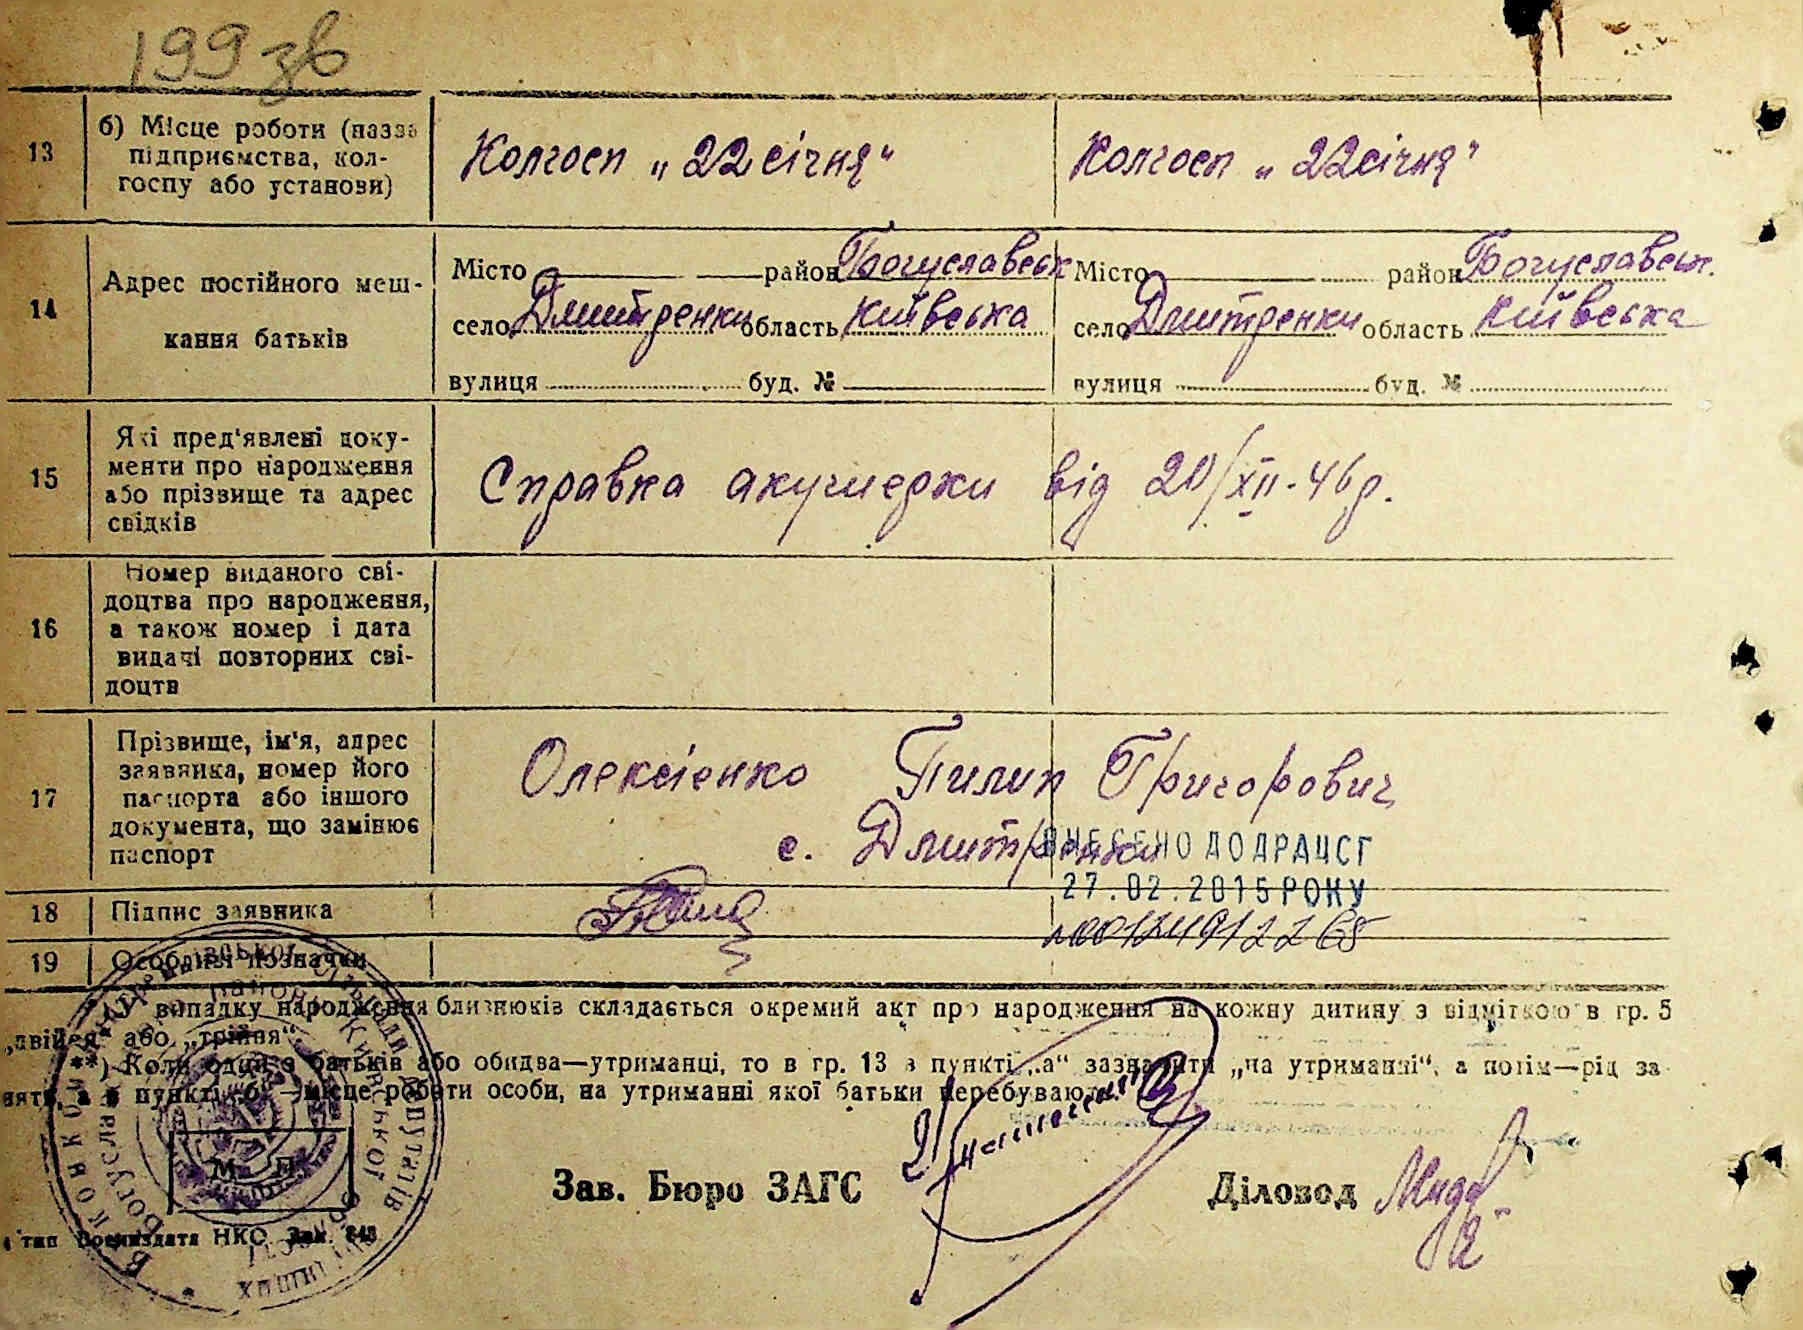 199 зв
13 б) Місце роботи (назва підприємства, колгоспу або установи) Колгосп „22 січня“ Колгосп „22 січня“
14 Адрес постійного меш-
кання батьків
Місто район Богуславськ Місто район Богуславськ.
село Дмитренки область Київська село Дмитренки область Київська
вулиця буд. № вулиця буд. №
15 Які пред'явлені доку-
менти про народження
або прізвище та адрес
свідків
Справка акушерки від 20/XII-46р.
16 Номер виданого сві-
доцтва про народження,
а також номер і дата
видачі повторних сві-
доцтв
17 Прізвище, ім'я, адрес
заявника, номер його
паспорта або іншого
документа, що замінює
паспорт
Олексієнко Пилип Григорович
с. Дмитренки
ВНЕСЕНО ДО ДРАЦСГ
27.02.2015 РОКУ
№00124912265
18 Підпис заявника
19 Особливі позначки
*) У випадку народження близнюків складається окремий акт про народження на кожну дитину з відміткою в гр. 5
„двійня“ або „трійня“.
**) Коли один з батьків або обидва—утриманці, то в гр. 13 в пункті „а“ зазначити „на утриманні“, а потім—рід за-
няття, а в пункті „б“—місце роботи особи, на утриманні якої батьки перебувають.
М. П.
Зав. Бюро ЗАГС Діловод
тип Воениздата НКО Зак. 648